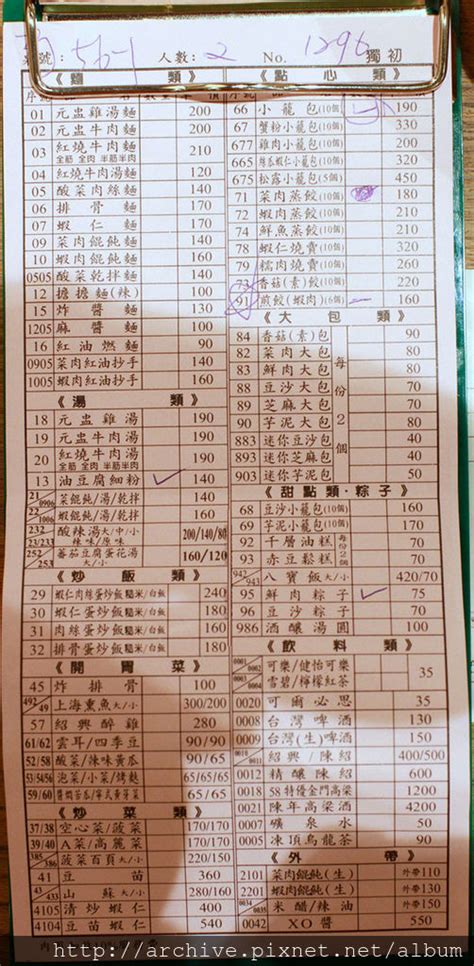 號: 56-1 人數: 2 No. 1296 獨初
《麵類》
01 元盅雞湯麵 200
02 元盅牛肉麵 200
03 紅燒牛肉麵 全筋 全肉 半筋半肉 210
04 紅燒牛肉湯麵 120
05 酸菜肉絲麵 140
06 排骨麵 170
07 蝦仁麵 170
09 菜肉餛飩麵 140
10 蝦肉餛飩麵 160
0505 酸菜乾拌麵 140
12 擔擔麵(辣) 100
15 炸醬麵
1205 麻醬麵
16 紅油燃麵 90
0905 菜肉紅油抄手 140
1005 蝦肉紅油抄手 160
《湯類》
18 元盅雞湯 190
19 元盅牛肉湯 190
20 紅燒牛肉湯 全筋 全肉 半筋半肉 190
13 油豆腐細粉 140
21/0906 菜餛飩/湯/乾拌 140
22/1006 蝦餛飩/湯/乾拌 160
232 23/233 酸辣湯大/中/小 辣味/原味 200/140/80
252/253 蕃茄豆腐蛋花湯 大/小 160/120
《炒飯類》
29 蝦仁肉絲蛋炒飯糙米/白飯 240
30 蝦仁蛋炒飯糙米/白飯 180
31 肉絲蛋炒飯糙米/白飯 160
32 排骨蛋炒飯糙米/白飯 180
《開胃菜》
45 炸排骨 100
492/49 上海熏魚大/小 300/200
57 紹興醉雞 280
61/62 雲耳/四季豆 90/90
52/58 酸菜/辣味黃瓜 90/65
53/54/56 泡菜/小菜/烤麩 65/65/65
59/60 90/65
《炒菜類》
37/38 空心菜/菠菜 170/170
39/40 A菜/高麗菜 170/170
385/386 菠菜百頁大/小 220/150
41 豆苗 360
43/433 山蘇大/小 280/160
4105 清炒蝦仁 400
4104 豆苗蝦仁 540
《點心類》
66 小籠包(10個) 190
67 蟹粉小籠包(10個) 330
677 雞肉小籠包(10個) 200
665 絲瓜蝦仁小籠包(10個) 320
675 松露小籠包(5個) 450
71 菜肉蒸餃(10個) 180
72 蝦肉蒸餃(10個) 210
74 鮮魚蒸餃(10個) 210
78 蝦仁燒賣(10個) 320
79 糯肉燒賣(10個) 220
73 香菇(素)餃(10個) 220
91 煎餃(蝦肉)(6個) 160
《大包類》
每份2個
84 香菇(素)包 90
82 菜肉大包 80
83 鮮肉大包 80
88 豆沙大包 70
89 芝麻大包 70
90 芋泥大包 70
883 迷你豆沙包 50
893 迷你芝麻包 50
903 迷你芋泥包 50
《甜點類·粽子》
68 豆沙小籠包(10個) 160
69 芋泥小籠包(10個) 170
92 千層油糕 每份2個 70
93 赤豆鬆糕 70
942/943 八寶飯大/小 420/70
95 鮮肉粽子 75
96 豆沙粽子 70
986 酒釀湯圓 100
《飲料類》
0001/0002 可樂/健怡可樂
0003/0004 雪碧/檸檬紅茶 35
0020 可爾必思 35
0008 台灣啤酒 130
0009 台灣(生)啤酒 150
0010/0011 紹興/陳紹 400/500
0012 精釀陳紹 600
0018 58特優金門高梁 1200
0021 陳年高梁酒 4200
0007 礦泉水 50
0005 凍頂烏龍茶 90
《外帶》
2101 菜肉餛飩(生) 外帶110
2201 蝦肉餛飩(生) 外帶130
0034/0035 米醋/辣油 150
0042 XO醬 550
http://archive.pixnet.net/album